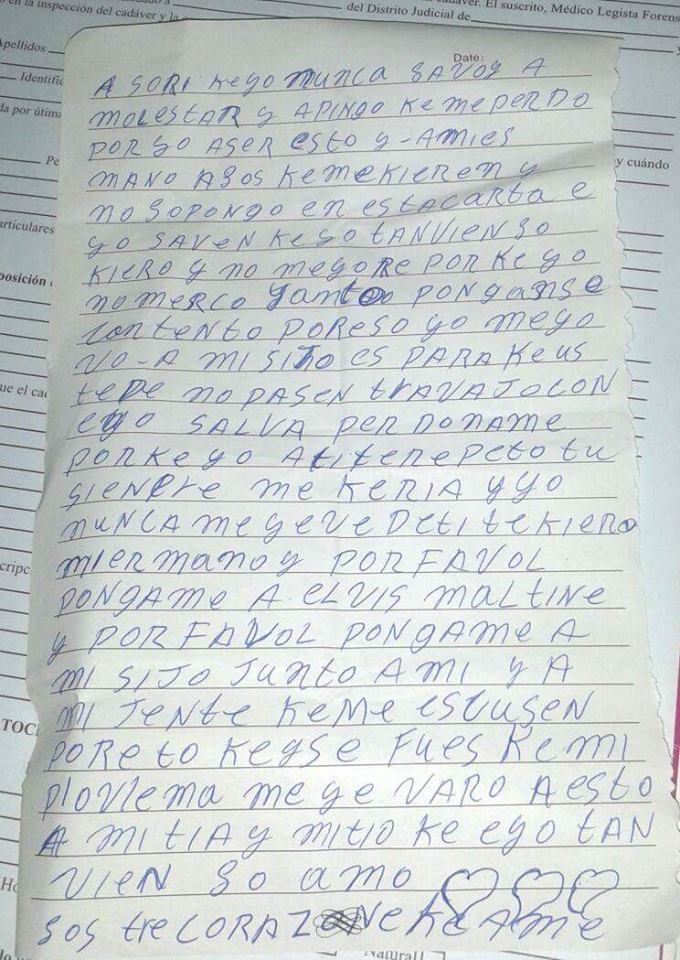 o en la inspección del cadáver y la
del Distrito Judicial de
cadáver. El suscrito, Médico Legista Forens
Apellidos
Date:
Identific
da por últim
Pe
y cuándo
articulares
posición
ue el ca
cripc
TOC
A SORI KEYO NUNCA SAVOY A
MOLESTAR Y APINGO KEMEPERDO
POR YO ASER ESTO Y-AMIES
MANO AGOS KEMEKIEREN Y
NO SOPONGO EN ESTACARTA E
YO SAVEN KEYO TANVIEN SO
KIERO Y NO MEGORE PORKE YO
NO MERCO YANTO PONGANSE
CONTENTO PORESO YO MEYO
VO-A MI SIJO ES PARAKEUS
TEDE NO PASEN TRAVAJOCON
EYO SALVA PERDONAME
PORKE YO ATITEREPETO TU
SIENPRE ME KERIA Y YO
NUNCA MEYEVE DETI TEKIERO
MIERMANO Y POR FAVOL
PONGAME A ELVIS MALTINE
Y POR FAVOL PONGAME A
MI SIJO JUNTO A MI Y A
MI JENTE KEME ESCUSEN
PORETO KEYSE FUES KEMI
PLOVLEMA MEYEVARO AESTO
A MI TIA Y MITIO KE EYO TAN
VIEN SO AMO
SOS TRE CORAZONE KEAME
Natural